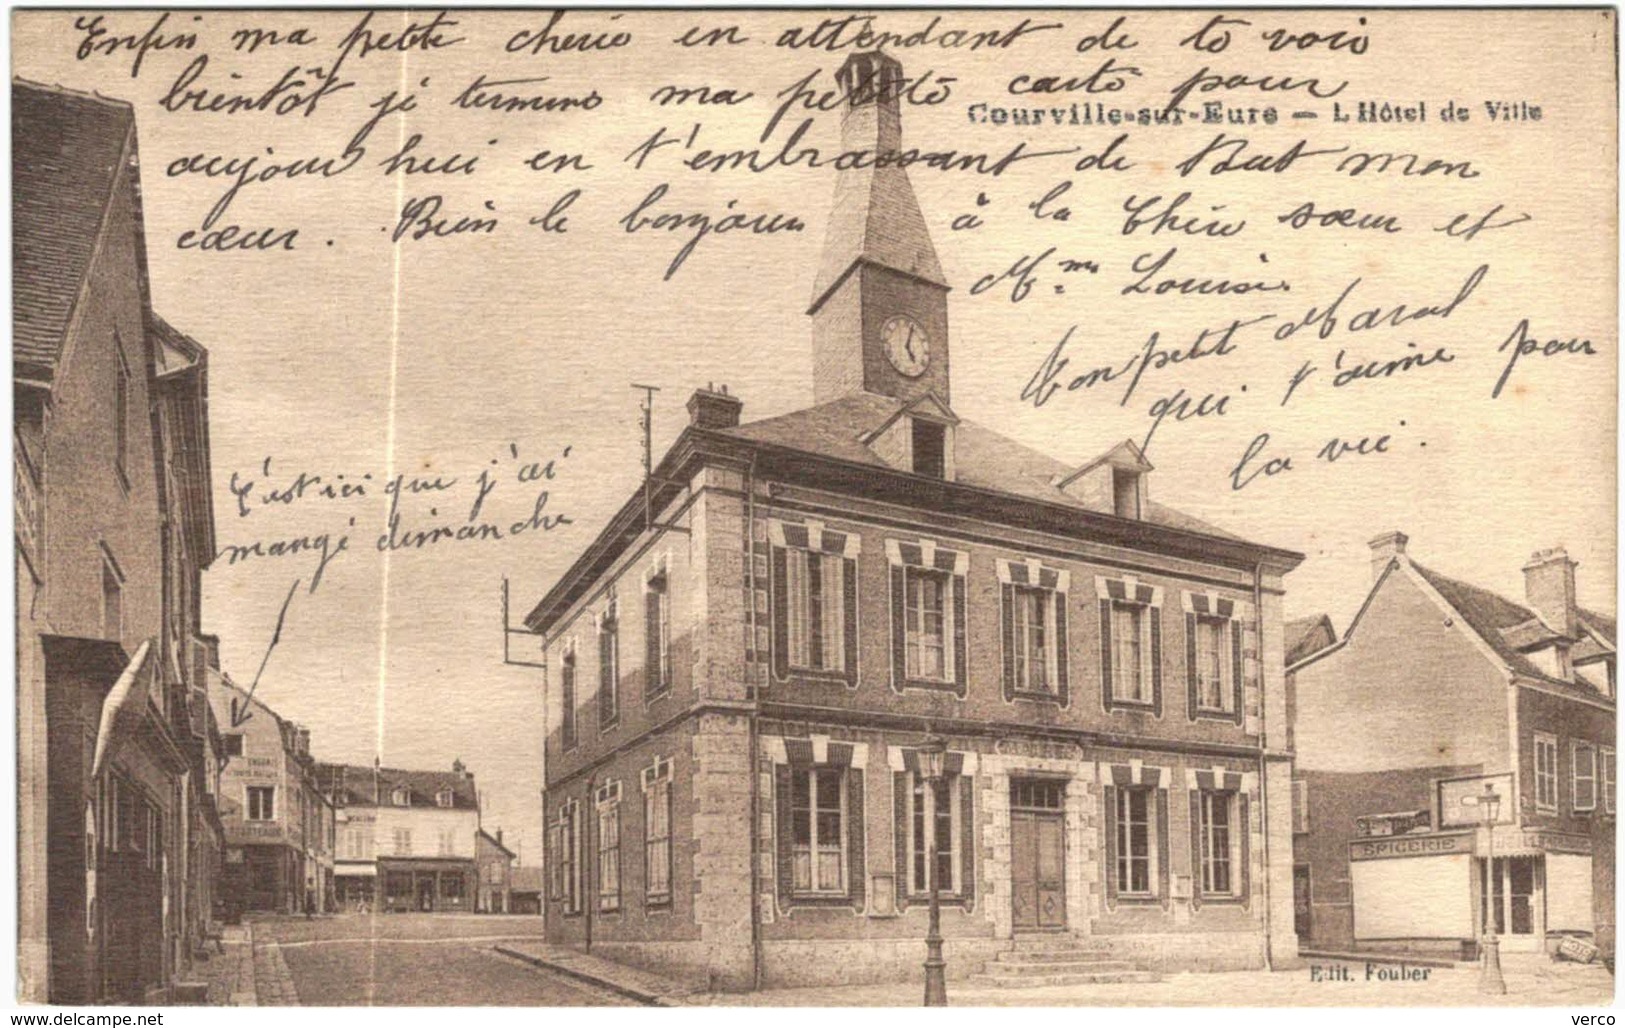 Enfin ma petite cherie en attendant de te voir
bientôt je termine ma petite carte pour
Courville-sur-Eure — L'Hôtel de Ville
aujour hui en t'embrassant de tout mon
cœur. Bien le bonjour à la chère sœur et
Mme Louise.
Ton petit Maral
qui t'aime pour
la vie.
C'est ici que j'ai
mangé dimanche
MAIRIE
EPICERIE
Edit. Foucher
delcampe.net
verco